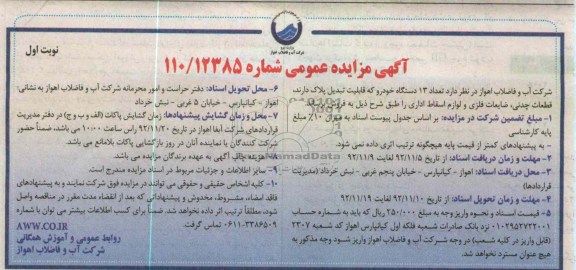 شرکت آب و فاضلاب اهواز
نوبت اول
آگهی مزایده عمومی شماره ۱۱۰/۱۲۳۸۵
شرکت آب و فاضلاب اهواز در نظر دارد تعداد ۱۳ دستگاه خودرو که قابلیت تبدیل پلاک دارند،
قطعات چدنی، ضایعات فلزی و لوازم اسقاط اداری را طبق شرح ذیل به فروش
۱- مبلغ تضمین شرکت در مزایده: بر اساس جدول پیوست اسناد به میزان ۱۰٪ مبلغ
پایه کارشناسی
- به پیشنهادهای کمتر از قیمت پایه هیچگونه ترتیب اثری داده نمی شود.
۲- مهلت و زمان دریافت اسناد: از تاریخ ۹۲/۱۱/۵ لغایت ۹۲/۱۱/۹
۳- محل دریافت اسناد: اهواز - کیانپارس - خیابان پنجم غربی - نبش خرداد (مدیریت
قراردادها)
۴- مهلت و زمان تحویل اسناد: از تاریخ ۹۲/۱۱/۱۰ لغایت ۹۲/۱۱/۱۹
۵- قیمت اسناد و نحوه واریز وجه به مبلغ ۲۵۰/۰۰۰ ریال که باید به شماره حساب
۰۱۰۲۹۵۲۷۲۲۰۰۱ نزد بانک صادرات شعبه فلکه اول کیانپارس اهواز کد شعبه ۲۳۰۷
(قابل واریز در کلیه شعب) در وجه شرکت آب و فاضلاب اهواز واریز شود وجه مذکور به
هیچ عنوان مسترد نخواهد شد.
۶- محل تحویل اسناد: دفتر حراست و امور محرمانه شرکت آب و فاضلاب اهواز به نشانی:
اهواز - کیانپارس - خیابان ۵ غربی - نبش خرداد
۷- محل و زمان گشایش پیشنهادها: زمان گشایش پاکات (الف و ب و ج) در دفتر مدیریت
قراردادهای شرکت آبفا اهواز در تاریخ ۹۲/۱۱/۲۰ راس ساعت ۱۰:۰۰ می باشد، ضمناً حضور
شرکت کنندگان یا نماینده آنان در روز بازگشایی پاکات بلامانع می باشد.
۸- هزینه چاپ آگهی به عهده برندگان مزایده می باشد.
۹- سایر اطلاعات و جزئیات مربوط در اسناد مزایده مندرج است.
۱۰- کلیه اشخاص حقیقی و حقوقی می توانند در مزایده فوق شرکت نمایند و به پیشنهادهای
فاقد امضاء، مشروط، مخدوش و پیشنهاداتی که بعد از انقضاء مدت مقرر در مناقصه واصل
شود، مطلقاً ترتیب اثر داده نخواهد شد. ضمناً برای کسب اطلاعات بیشتر می توان با شماره
۰۶۱۱-۳۳۸۶۵۰۹ تماس گرفت.
روابط عمومی و آموزش همگانی
شرکت آب و فاضلاب اهواز